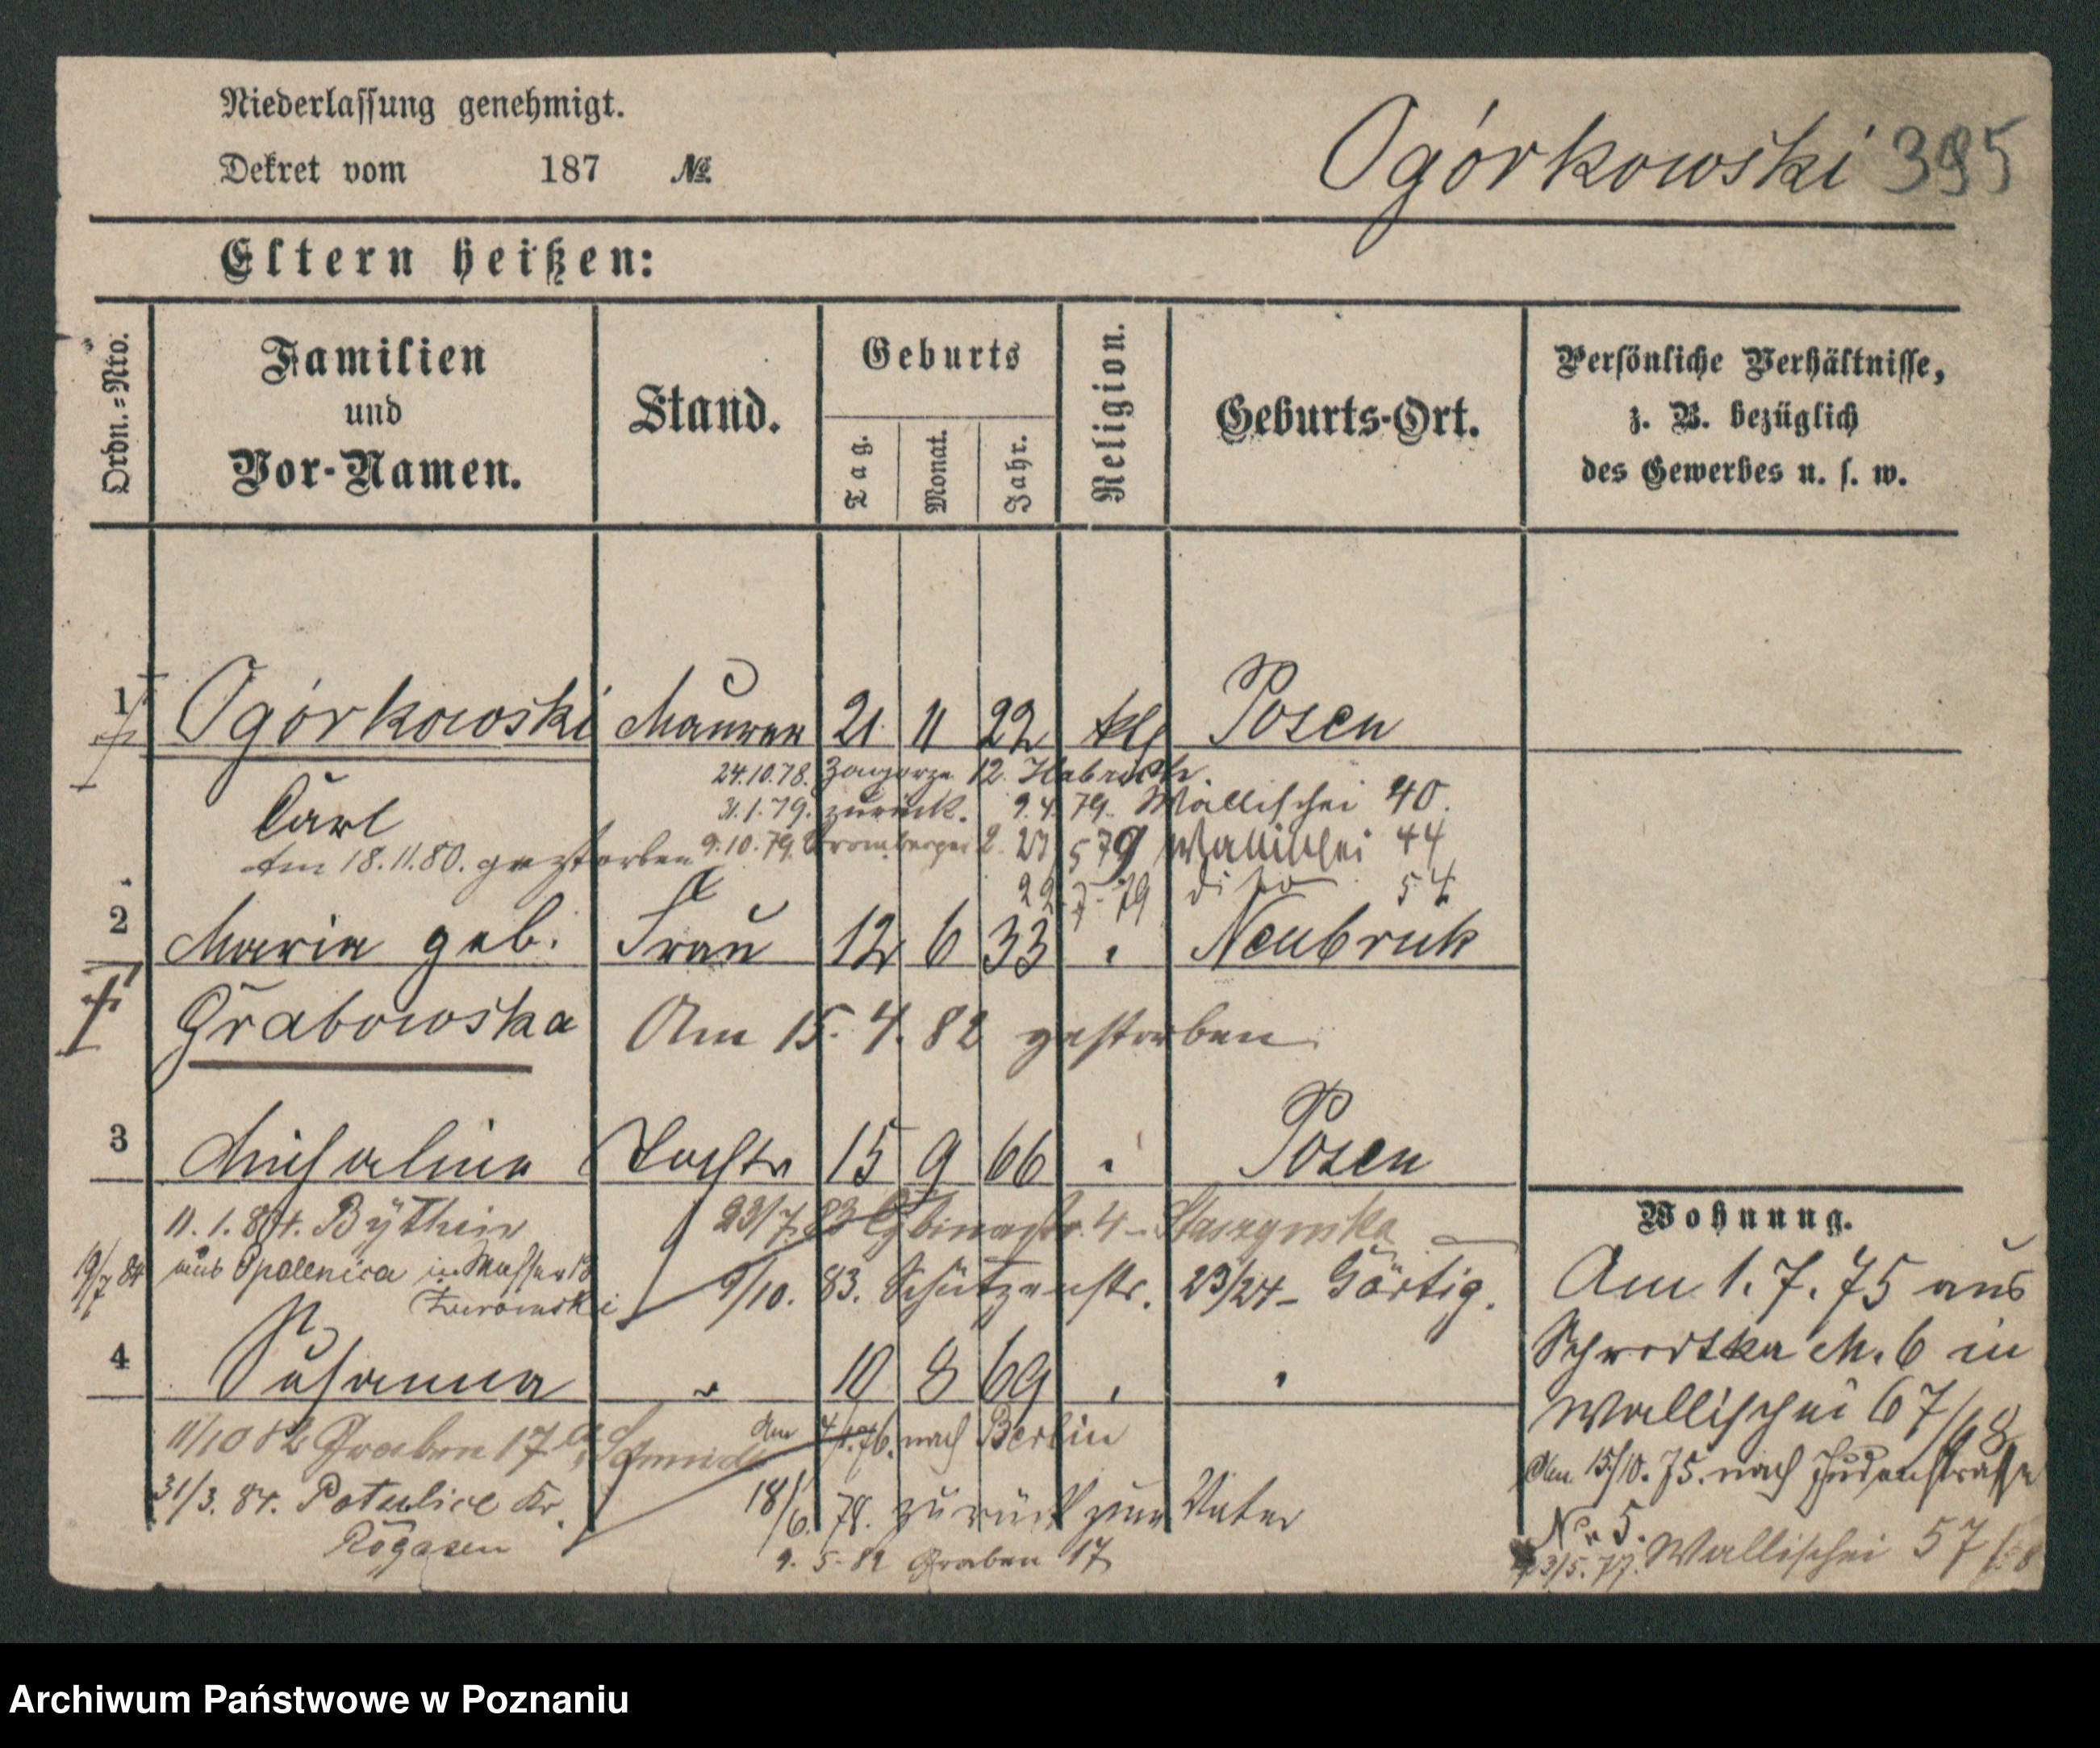 Niederlassung genehmigt.
Dekret vom 187 No.
Ogórkowski 395
Eltern heißen:
Ordn.-Nro.
Familien
und
Vor-Namen.
Stand.
Geburts
Tag.
Monat.
Jahr.
Religion.
Geburts-Ort.
Persönliche Verhältnisse,
z. B. bezüglich
des Gewerbes u. s. w.
1 Ogórkowski Maurer 21 11 22 Posen
24.10.78. 12.
Carl
31.1.79. zurück. 9.4.79. Wallischei 40.
Am 18.11.80. gestorben 9.10.79. 2. 27 5 79 Wallischei 44
22.7.79 dito 54
2 Maria geb. Frau 12 6 33 " Neubruk
Grabowska Am 15.4.82 gestorben.
3 Michalina Tocht 15 9 66 " Posen
11.1.84. Bÿthin 23/7 83 4 -
19/7 84 aus Opalenica in 9/10. 83. Schützenstr. 23/24 - Görtig.
4 Susanna " 10 8 69 " "
11/10 82 Graben 17 Am 4/1.76. nach Berlin
31/3. 84. Potulice Kr. 18/6. 78. zurück zum Vater
Rogasen 9.5.82 Graben 17
Wohnung.
Am 1.7.75 aus
Schrodka M. 6 in
Wallischei 67/68
Am 15/10.75. nach Judenstraße
No 5.
23/5.77. Wallischei 57/58
Archiwum Państwowe w Poznaniu